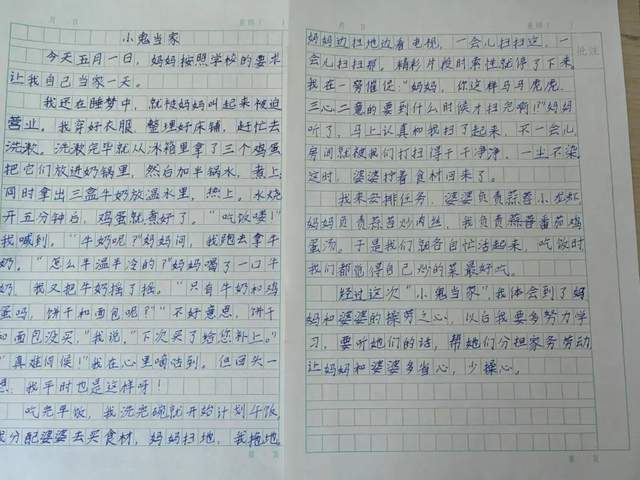 小鬼当家
今天五月一日，妈妈按照学校的要求
让我自己当家一天。
我还在睡梦中，就被妈妈叫起来被迫
营业。我穿好衣服，整理好床铺，赶忙去
洗漱。洗漱完毕就从冰箱里拿了三个鸡蛋
把它们放进奶锅里，然自加半锅水，煮上
同时拿出三盒牛奶放温水里，热上。水烧
开五分钟自，鸡蛋就煮好了。“吃饭喽！”
我喊到。“牛奶呢？”妈妈问，我跑去拿牛
奶。“怎么半温半冷的？”妈妈喝了一口牛
奶，我又把牛奶摇了摇。“只有牛奶和鸡
蛋吗，饼干和面包呢？”“不好意思，饼干
和面包没买，”我说，“下次买了给您补上。”
“真难伺候！”我在心里嘀咕到。但回头一
想，我平时也是这样呀！
吃完早饭，我洗完碗就开始计划午饭
我分配婆婆去买食材，妈妈扫地，我拖地
妈妈边扫地边看电视，一会儿扫扫这，一
会儿扫扫那。精彩片段时索性就停了下来
我在一旁催促：“妈妈，你这样马马虎虎，
三心二意的要到什么时候才扫完啊！？”妈妈
听了，马上认真和我扫了起来，不一会儿，
房间就被我们打扫得干干净净，一尘不染。
这时，婆婆拧着食材回来了。
我来安排任务，婆婆负责蒜蓉小龙虾
妈妈负责蒜苔炒肉丝，我负责番茄鸡
蛋汤。于是我们就各自忙活起来，吃饭时
我们都觉得自己炒的菜最好吃。
经过这次“小鬼当家”，我体会到了妈
妈和婆婆的操劳之心，以自我要多努力学
习，要听她们的话，帮她们分担家务劳动
让妈妈和婆婆多省心，少操心。
批注